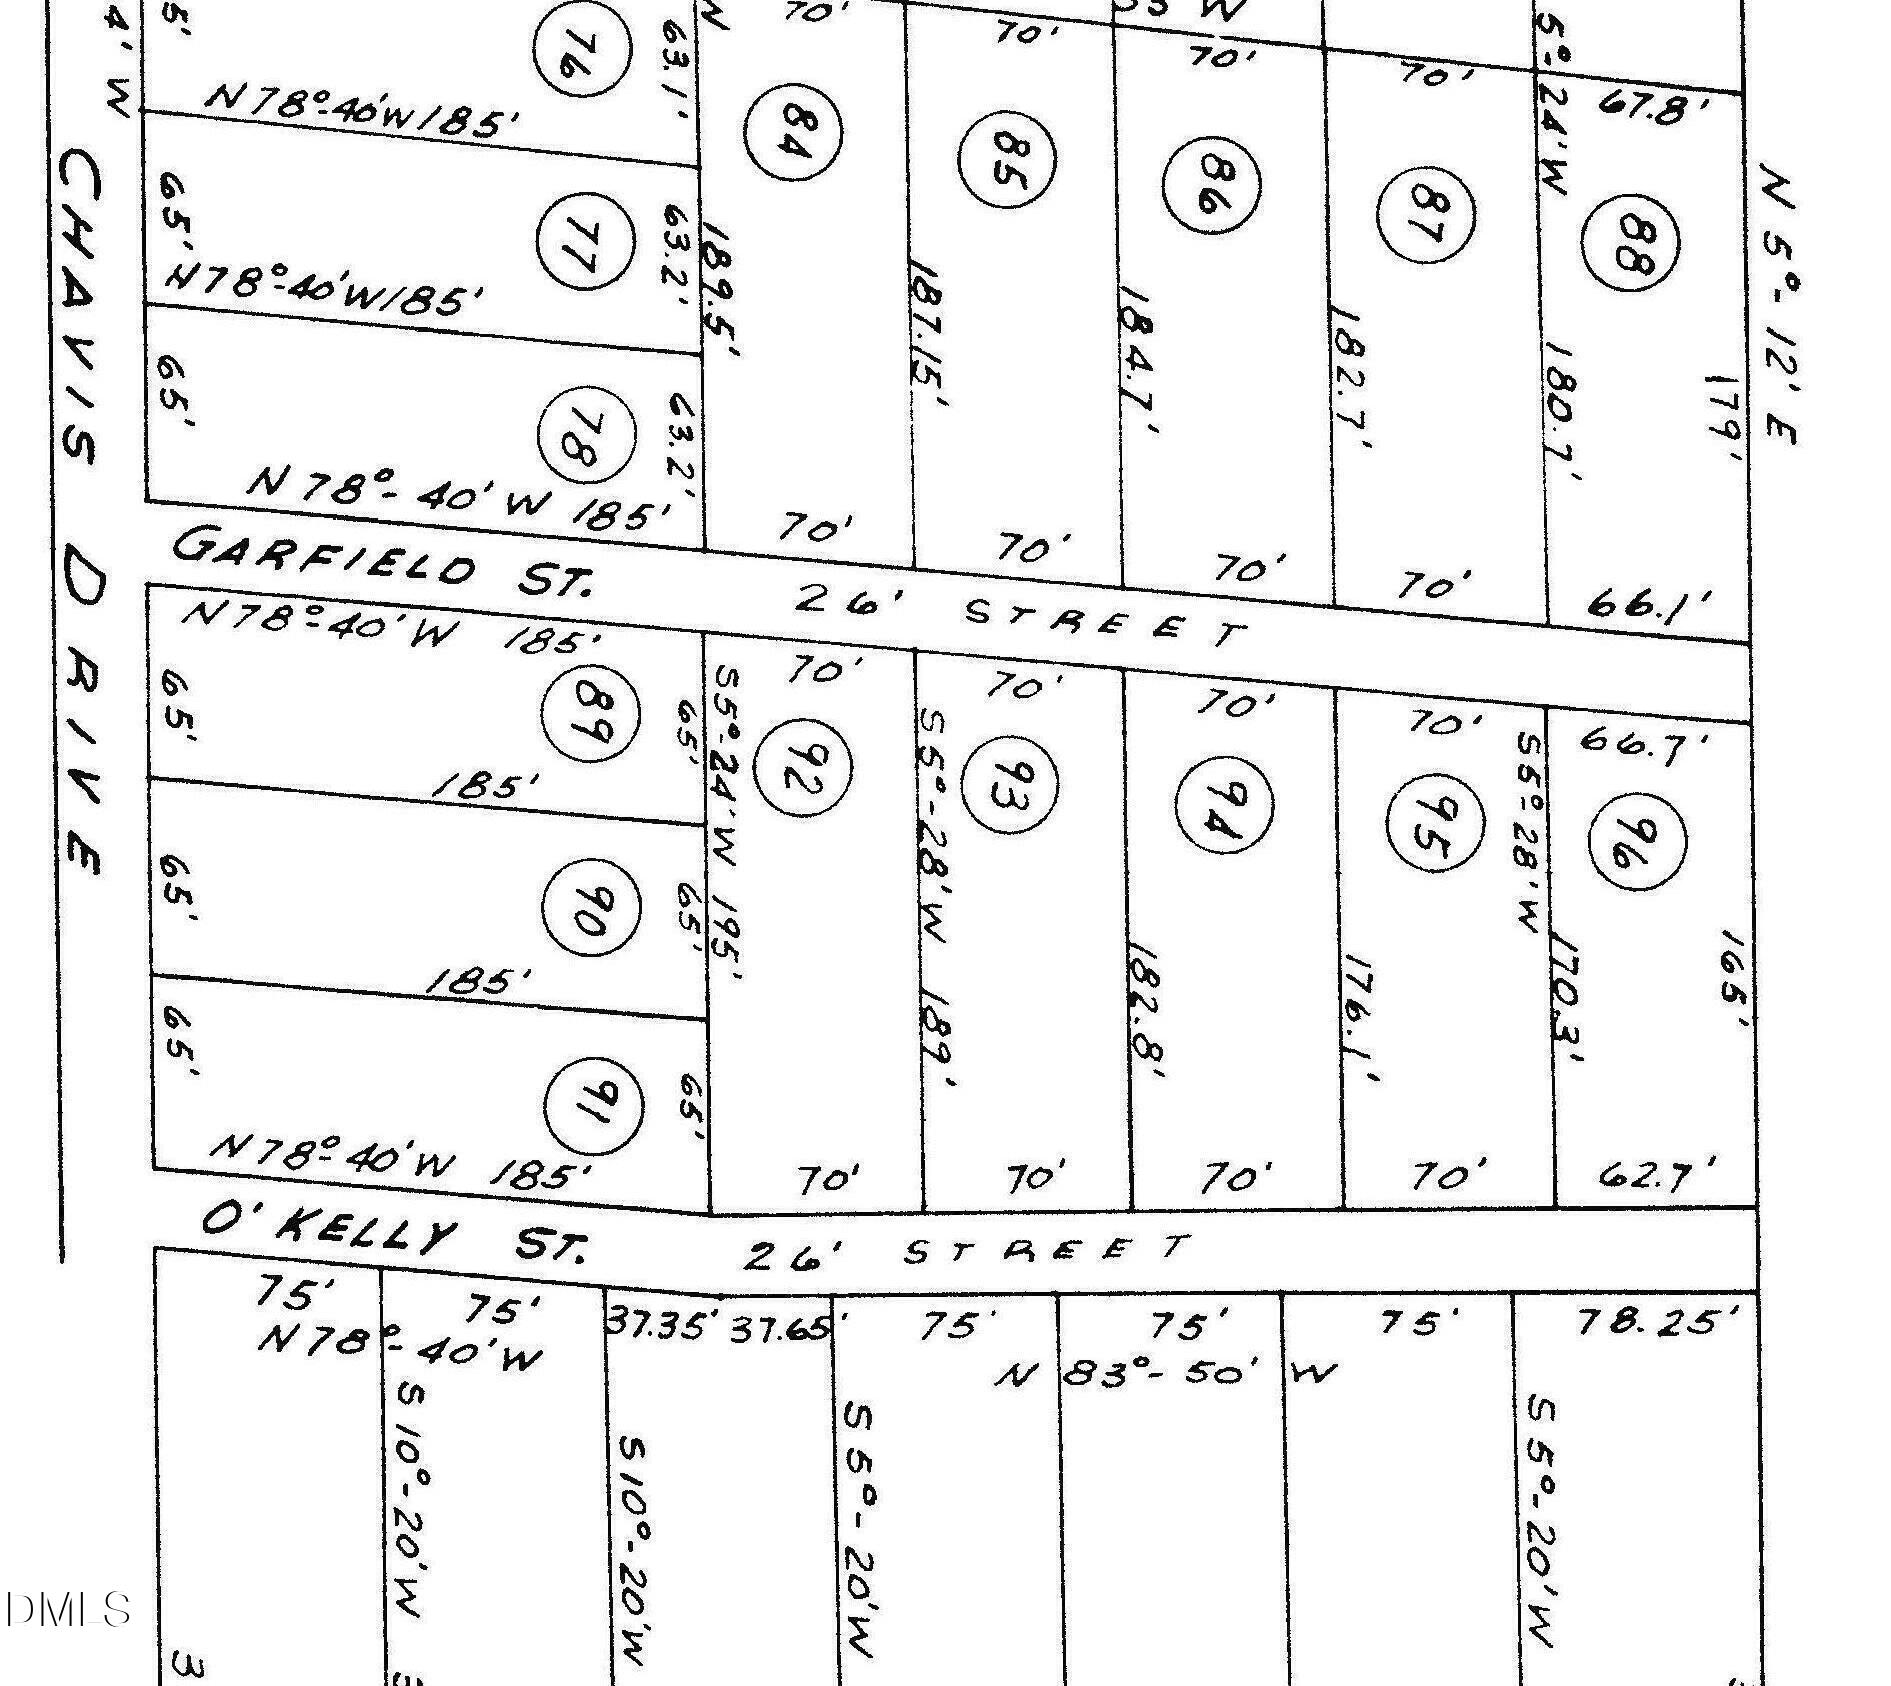 5'
4' W
76
63.1'
N
70'
70'
W
70'
70'
5°-24'W
67.8'
N 78°-40'W 185'
84
85
86
87
88
N 5°-12' E
CHAVIS DRIVE
65'
77
63.2'
189.5'
187.15'
184.7'
182.7'
180.7'
179'
N 78°-40'W 185'
65'
78
63.2'
N 78°-40' W 185'
70'
70'
70'
70'
66.1'
GARFIELD ST. 26' STREET
N 78°-40' W 185'
65'
89
65'
S5°-24'W 195'
70'
70'
70'
70'
66.7'
92
S5°-28'W 189'
93
94
95
S5°-28'W
96
185'
65'
90
65'
182.8'
176.1'
170.3'
165'
185'
65'
91
65'
N 78°-40'W 185'
70'
70'
70'
70'
62.7'
O'KELLY ST. 26' STREET
75'
75'
37.35'
37.65'
75'
75'
75'
78.25'
N 78°-40'W
N 83°-50' W
S 10°-20'W
S 10°-20'W
S 5°-20'W
S 5°-20'W
DMLS
3